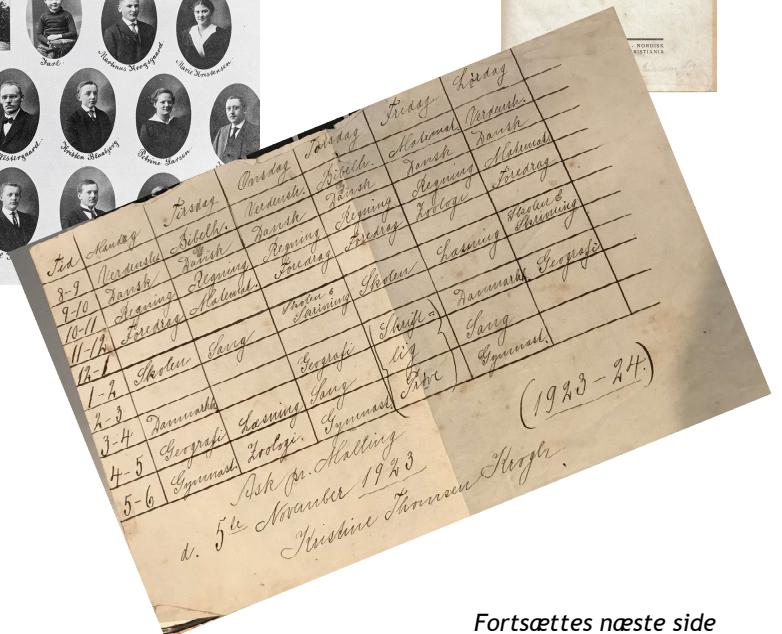 Marie Kristensen.
Kristen Blaabjerg.
Petrine Larsen.
- NORDISK
RISTIANIA
Tid Mandag Tirsdag Onsdag Torsdag Fredag Lørdag
8-9 Verdensh. Bibelh. Verdensh. Bibelh. Matemat. Verdensh.
9-10 Dansk Dansk Dansk Dansk Dansk Dansk
10-11 Regning Regning Regning Regning Regning Matemat.
11-12 Foredrag Matemat. Foredrag Foredrag Zoologi Foredrag
12-1
1-2 Skolen Sang Skolen & Skrivning Skolen Læsning Skolen & Skrivning
2-3
3-4 Danmarks Geografi Skrift= Danmarks Geografi
4-5 Geografi Læsning Sang lig Sang
5-6 Gymnast. Zoologi. Gymnast. Prøve Gymnast.
(1923-24.)
Ask pr. Malling
d. 5te November 1923
Kristine Thomsen Krogh.
Fortsættes næste side